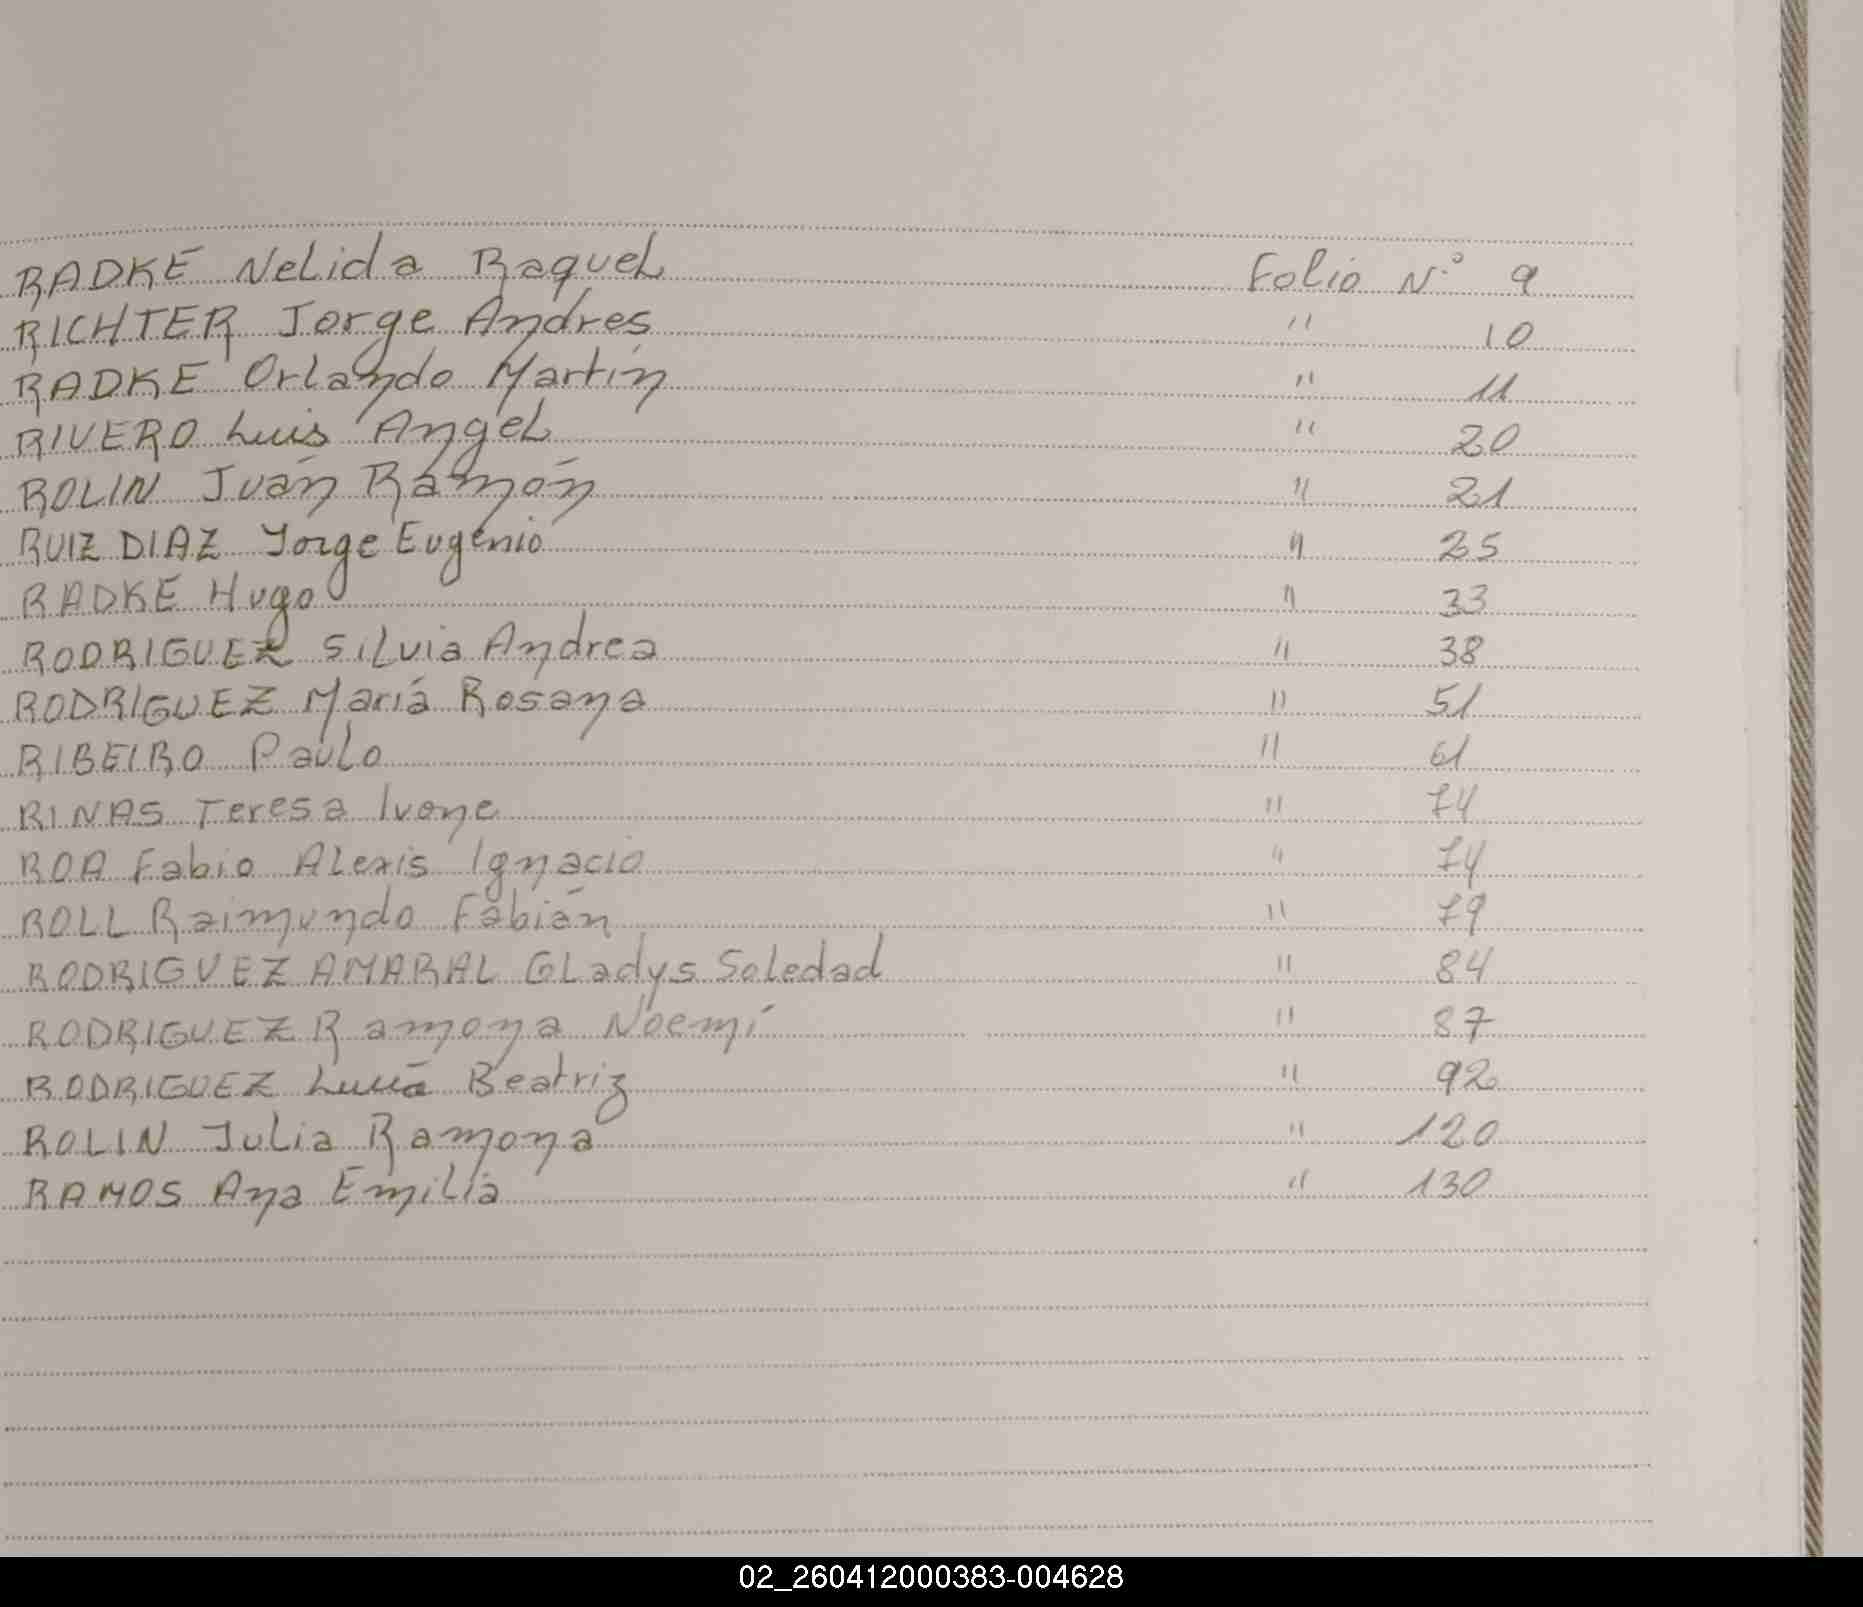 RADKE Nelida Raquel Folio N.º 9
RICHTER Jorge Andres " 10
RADKE Orlando Martín " 11
RIVERO Luis Angel " 20
ROLIN Juán Ramón " 21
RUIZ DIAZ Jorge Eugenio " 25
RADKE Hugo " 33
RODRIGUEZ Silvia Andrea " 38
RODRIGUEZ Mariá Rosana " 51
RIBEIRO Paulo " 61
RINAS Teresa Ivone " 74
ROA Fabio Alexis Ignacio " 74
ROLL Raimundo Fabián " 79
RODRIGUEZ AMARAL Gladys Soledad " 84
RODRIGUEZ Ramona Noemí " 87
RODRIGUEZ Luciá Beatriz " 92
ROLIN Julia Ramona " 120
RAMOS Ana Emilia " 130
02_260412000383-004628